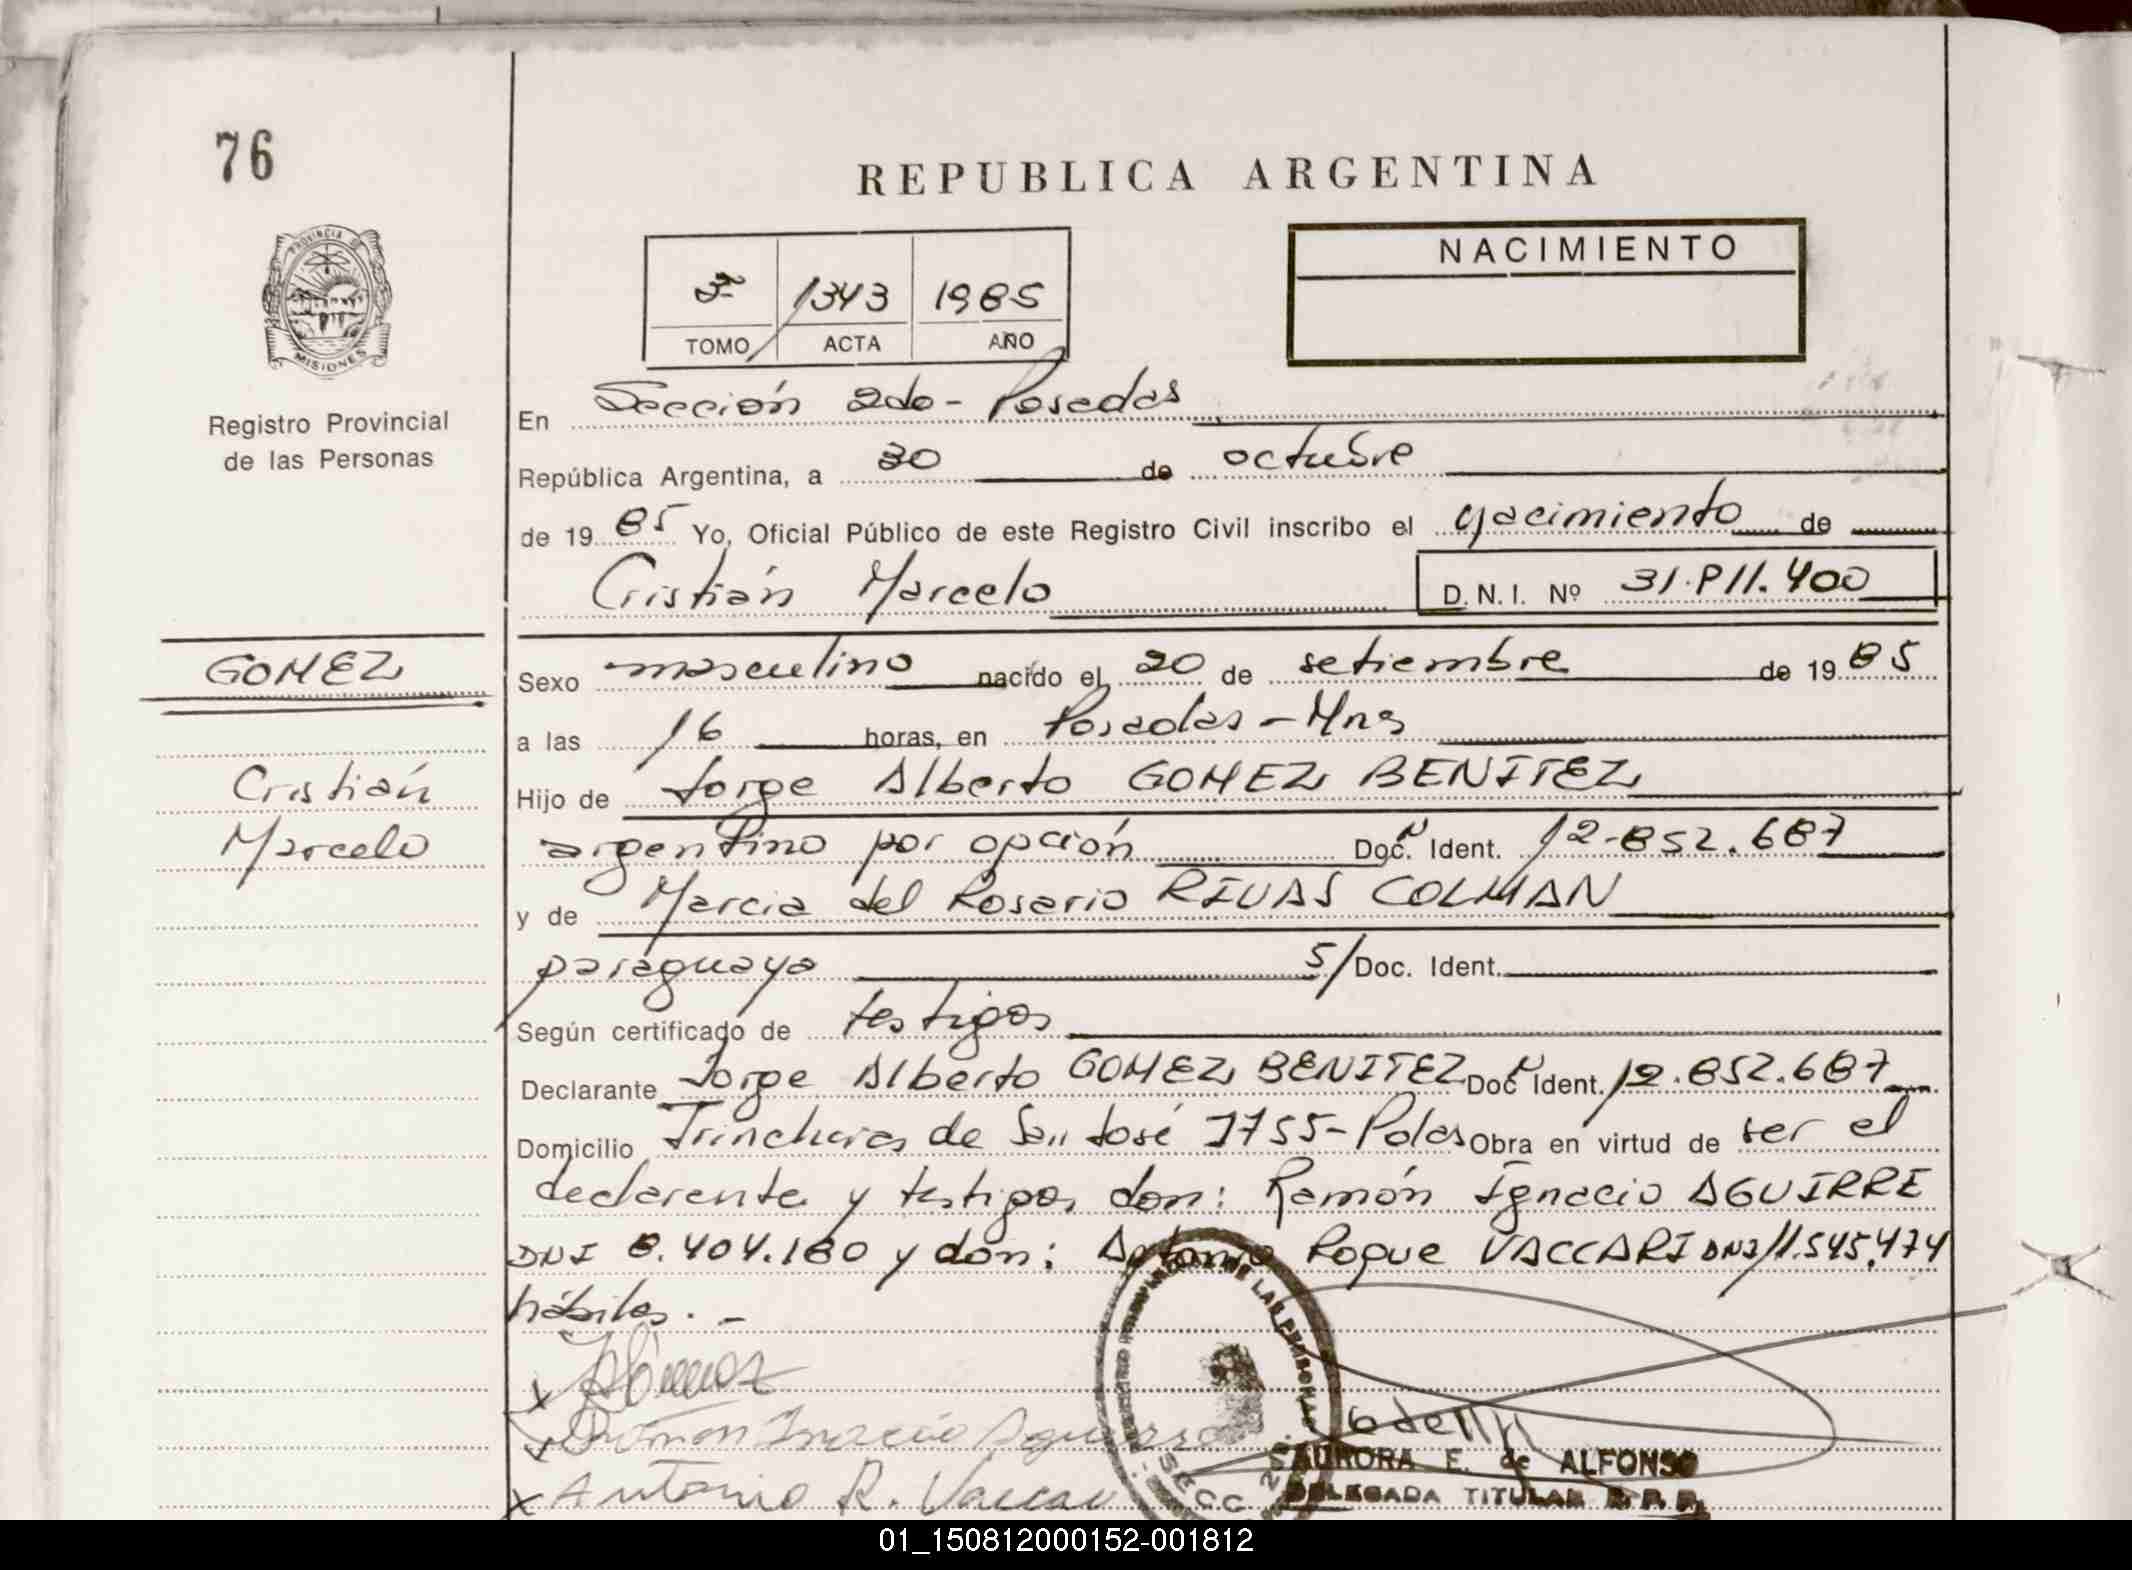 76
REPUBLICA ARGENTINA
PROVINCIA DE
MISIONES
Registro Provincial
de las Personas
1343 1985
TOMO ACTA AÑO
NACIMIENTO
En Sección 2da - Posadas
República Argentina, a 30 de octubre
de 1985 Yo, Oficial Público de este Registro Civil inscribo el nacimiento de
Cristián Marcelo D.N.I. Nº 31.811.400
GOMEZ
Cristián
Marcelo
Sexo masculino nacido el 20 de setiembre de 1985
a las 16 horas, en Posadas - Mns
Hijo de Jorge Alberto GOMEZ BENITEZ
argentino por opción Doc. N Ident. 12.852.687
y de Marcia del Rosario RIVAS COLMAN
paraguaya S/ Doc. Ident.
Según certificado de testigos
Declarante Jorge Alberto GOMEZ BENITEZ Doc N Ident. 12.852.687
Domicilio Trincheras de San José 1755 - Pdas Obra en virtud de ser el
declarante y testigos don: Ramón Ignacio AGUIRRE
DNI 8.404.180 y don: Antonio Roque VACCARI DNI 11.545.474
hábiles. -
Antonio R. Vaccari
SECC
AURORA E. de ALFONSO
DELEGADA TITULAR R. P. P.
01_150812000152-001812